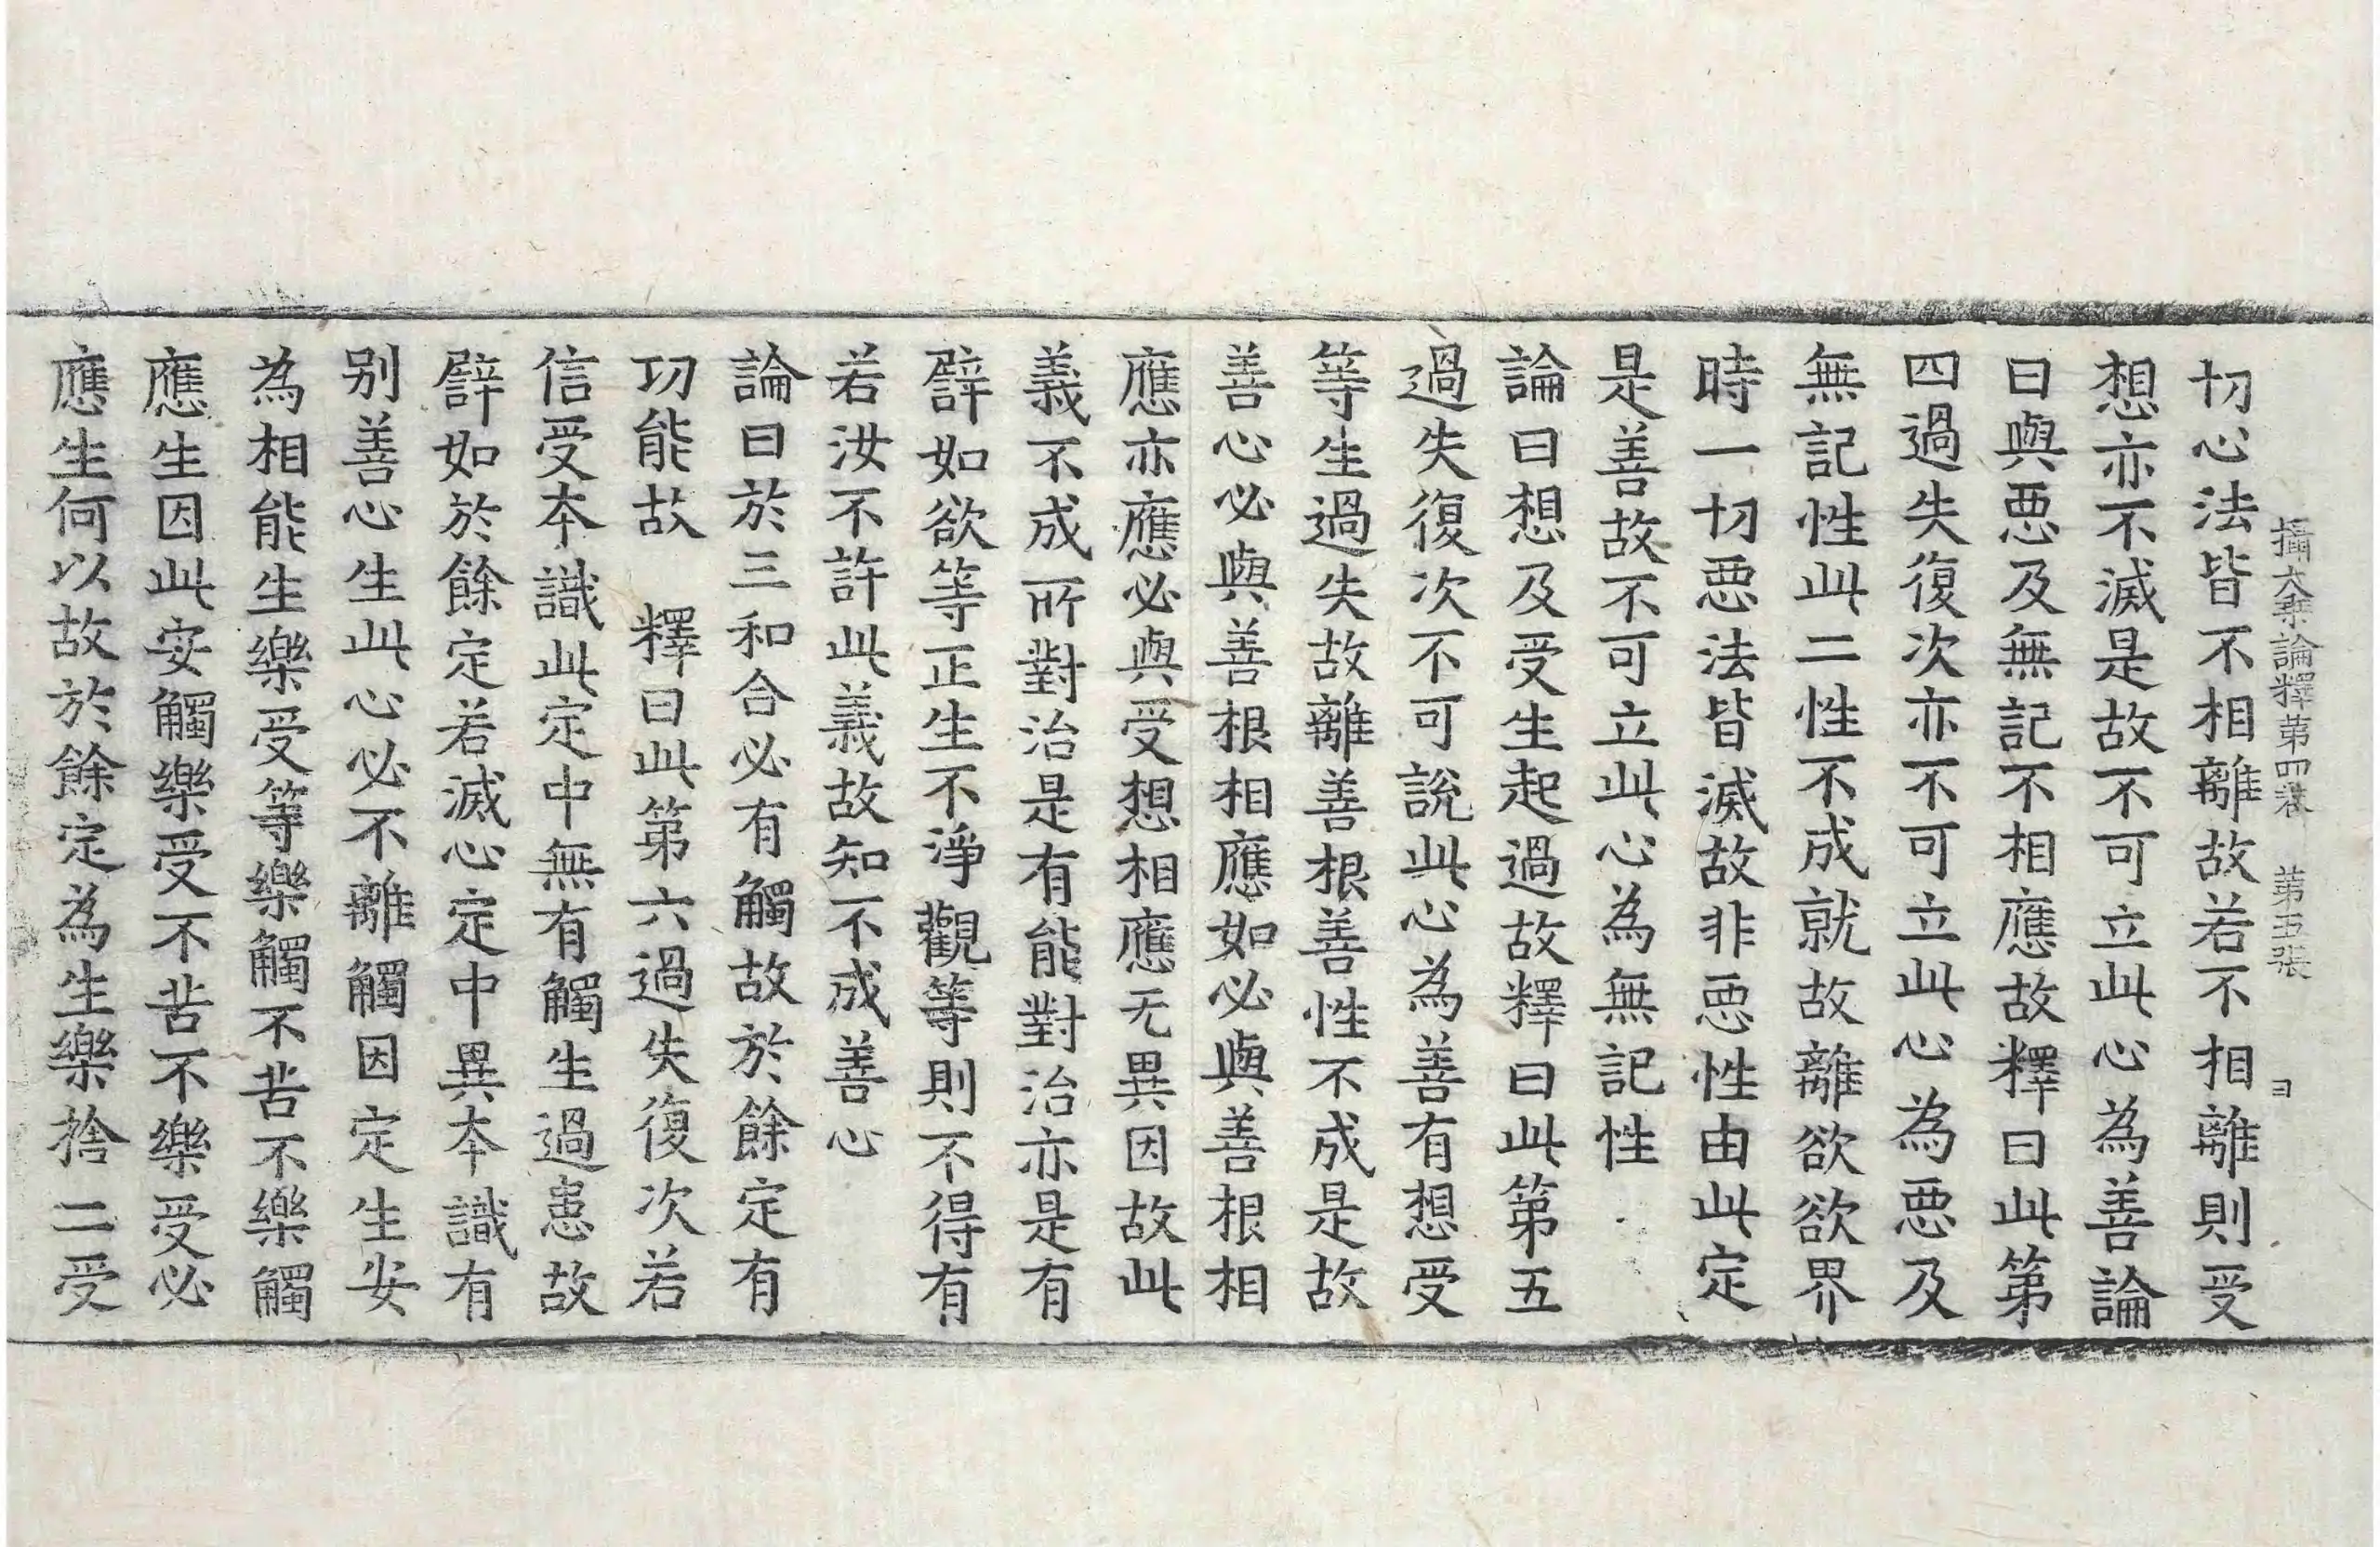 攝大乘論釋第四卷　第五張　ヨ
切心法皆不相離故若不相離則受
想亦不滅是故不可立此心為善論
曰與惡及無記不相應故釋曰此第
四過失復次亦不可立此心為惡及
無記性此二性不成就故離欲欲界
時一切惡法皆滅故非惡性由此定
是善故不可立此心為無記性
論曰想及受生起過故釋曰此第五
過失復次不可說此心為善有想受
等生過失故離善根善性不成是故
善心必與善根相應如必與善根相
應亦應必與受想相應无異因故此
義不成所對治是有能對治亦是有
譬如欲等正生不淨觀等則不得有
若汝不許此義故知不成善心
論曰於三和合必有觸故於餘定有
功能故　釋曰此第六過失復次若
信受本識此定中無有觸生過患故
譬如於餘定若滅心定中異本識有
别善心生此心必不離觸因定生安
為相能生樂受等樂觸不苦不樂觸
應生因此安觸樂受不苦不樂受必
應生何以故於餘定為生樂捨二受